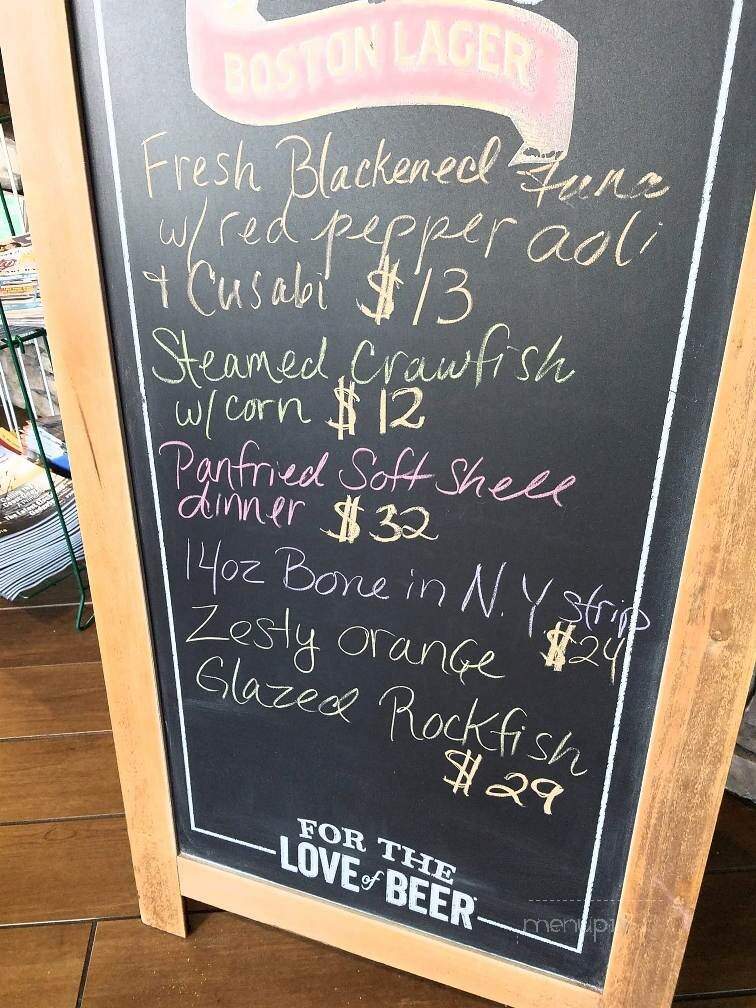 BOSTON LAGER
Fresh Blackened Tuna
w/ red pepper aoli
+ Cusabi $13
Steamed Crawfish
w/ corn $12
Panfried Soft Shell
dinner $32
14oz Bone in N.Y strip
Zesty orange $24
Glazed Rockfish
$29
FOR THE
LOVE of BEER